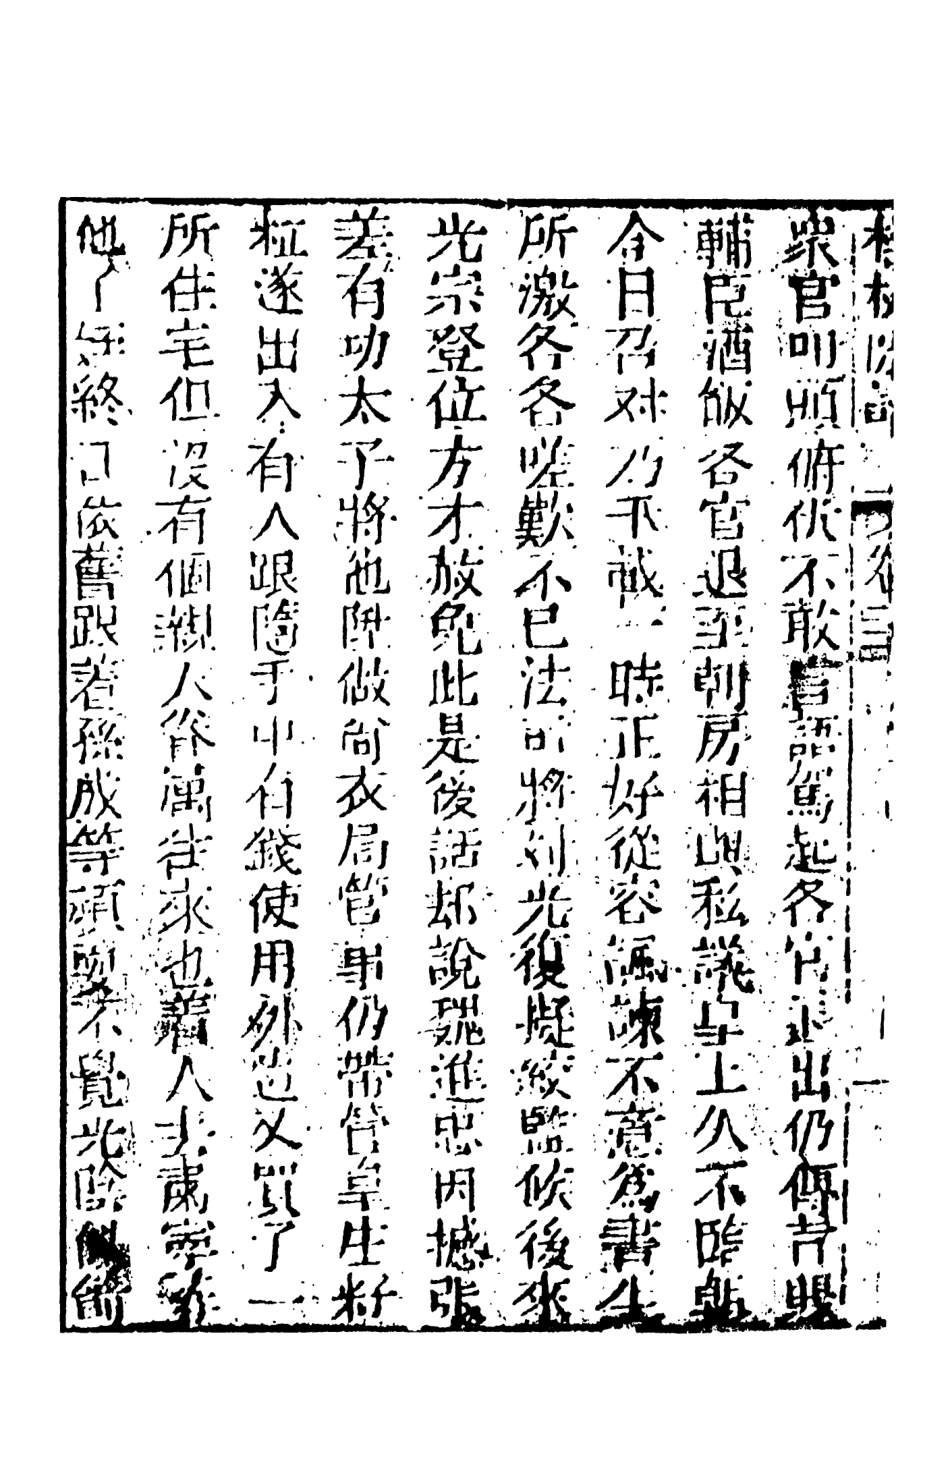 檮杌閑評 卷三
衆官叩頭俯伏不敢言語駕起各官退出仍傳旨賜
輔臣酒飯各官退至朝房相與私議皇上久不臨朝
今日召對乃千載一時正好從容諷諫不意爲書生
所激各各嗟歎不已法司將刘光復擬絞監候後來
光宗登位方才放免此是後話却說魏進忠因撼張
差有功太子將他陞做尚衣局管事仍帶管皇生籽
粒遂出入有人跟隨手中有錢使用外边又買了一
所住宅但沒有個親人眷属往來也着人去肅寧
他了無終日依舊跟着孫成等頑耍不覺光陰似箭